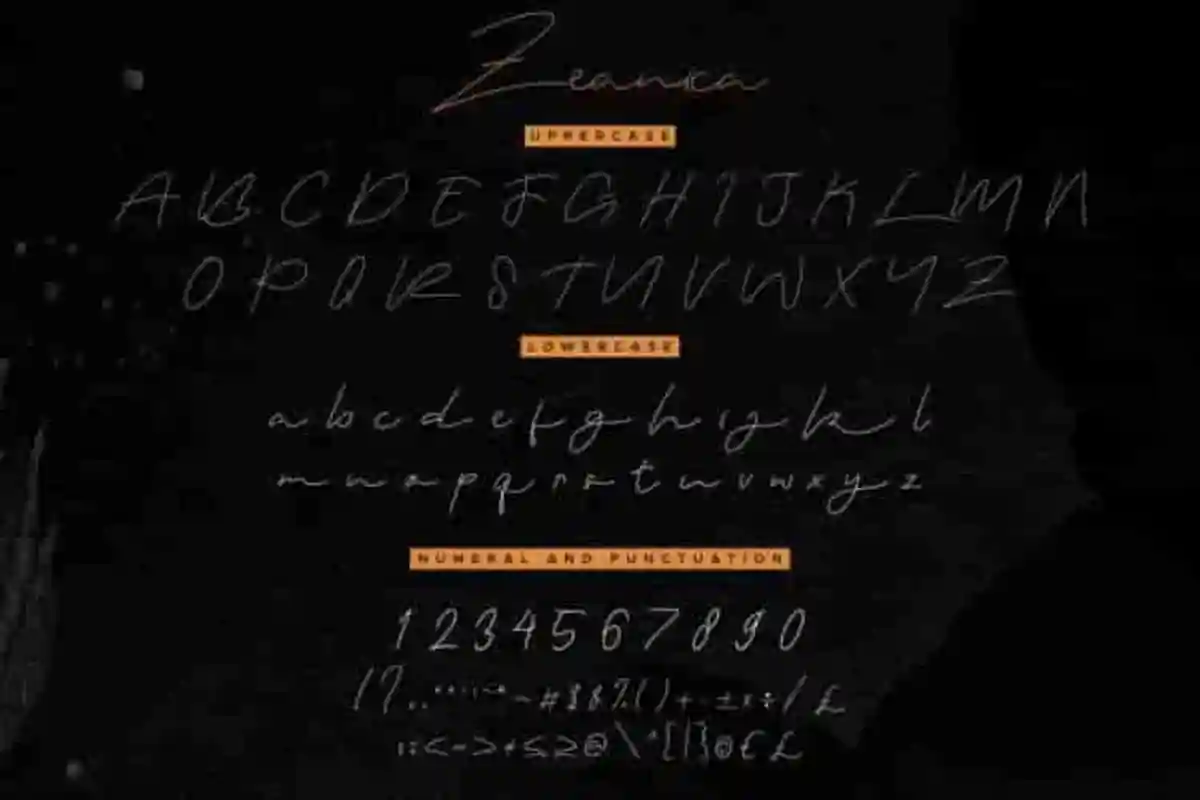 Zeanica
UPPERCASE
A B C D E F G H I J K L M N
O P Q R S T U V W X Y Z
LOWERCASE
a b c d e f g h i j k l
m n o p q r s t u v w x y z
NUMERAL AND PUNCTUATION
1 2 3 4 5 6 7 8 9 0